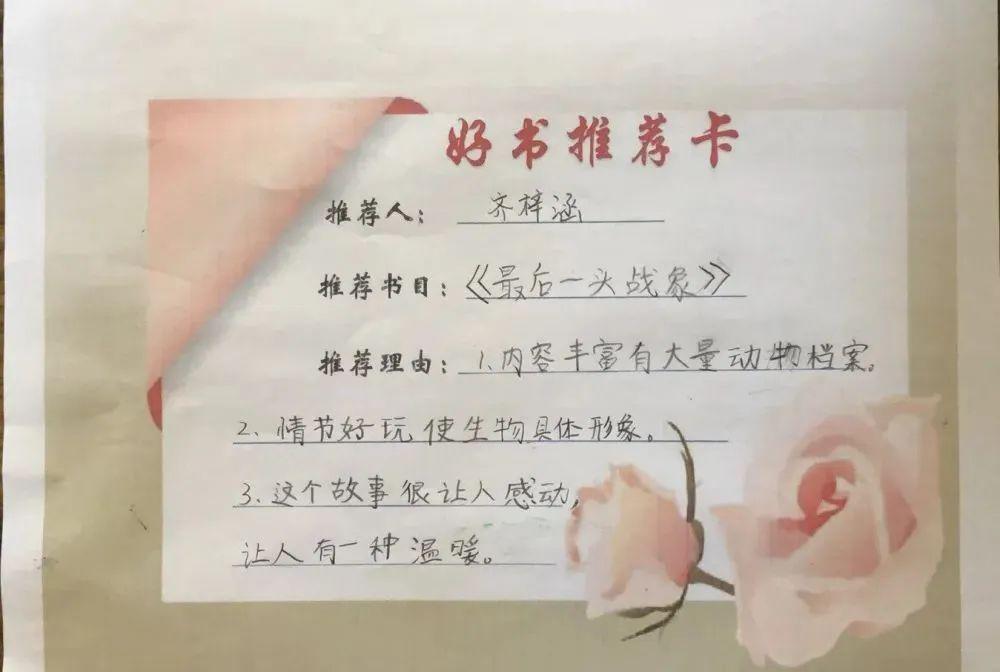 好书推荐卡
推荐人：齐梓涵
推荐书目：《最后一头战象》
推荐理由：1.内容丰富有大量动物档案。
2、情节好玩使生物具体形象。
3、这个故事很让人感动，
让人有一种温暖。